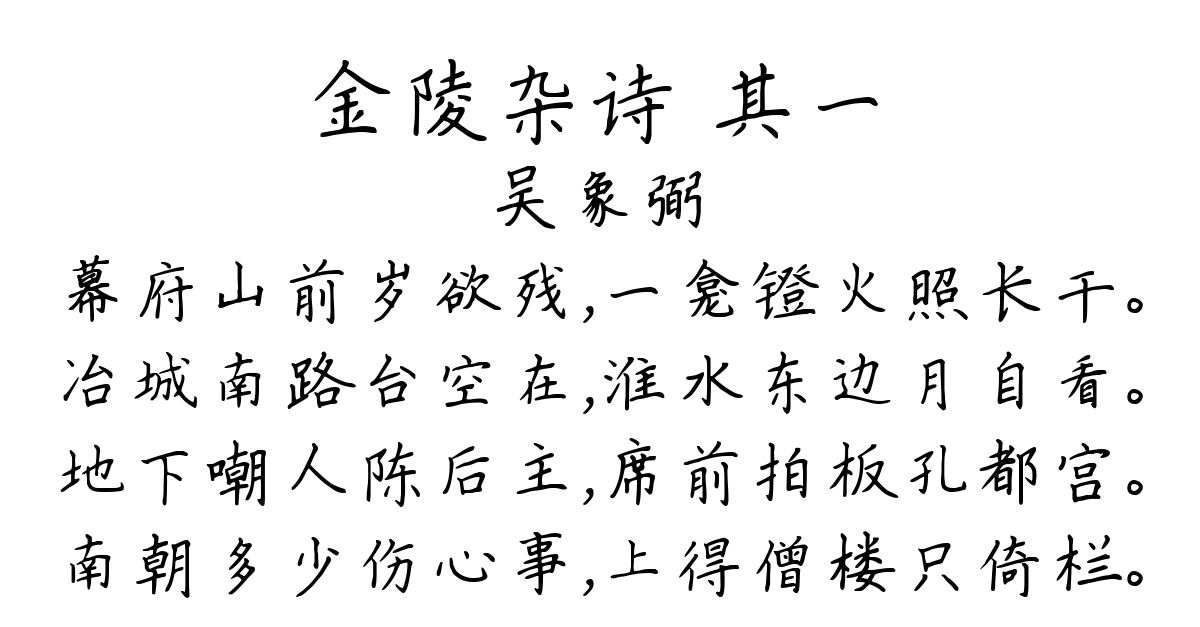 金陵杂诗 其一
吴象弼
幕府山前岁欲残,一龛镫火照长干。
冶城南路台空在,淮水东边月自看。
地下嘲人陈后主,席前拍板孔都官。
南朝多少伤心事,上得僧楼只倚栏。